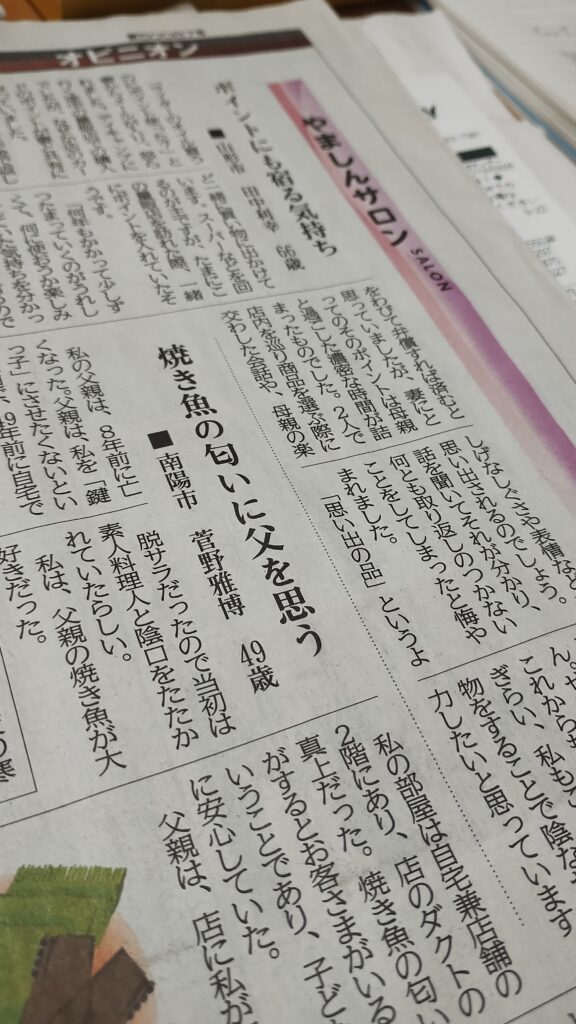 オピニオン
やましんサロン
SALON
ポイントにも宿る気持ち
■山形市 田中利幸 66歳
と一緒に買い物に出かけて
います。スーパーなどを回
るのがまですが、たまにこ
の農産店を訪れた際、一緒
にポイントを入れていたそ
うです。
「何年もかかって少しず
つたまっていくのがうれし
くて、何に使おうか楽しみ
をわびて弁償すれば済むと
思っていましたが、妻にと
ってのそのポイントは母親
と過ごした濃密な時間が詰
まったものでした。2人で
店内を巡り商品を選ぶ際に
交わした会話や、母親の楽
しげなしぐさや表情など
思い出されるのでしょう。
話を聞いてそれが分かり、
何とも取り返しのつかない
ことをしてしまったと悔や
まれました。
「思い出の品」というよ
これからも
ぎらい、私もこ
物をすることで陰な
力したいと思っています
焼き魚の匂いに父を思う
■南陽市 菅野雅博 49歳
私の父親は、8年前に亡
くなった。父親は、私を「鍵
っ子」にさせたくないとい
9年前に自宅で
脱サラだったので当初は
素人料理人と陰口をたたか
れていたらしい。
私は、父親の焼き魚が大
好きだった。
私の部屋は自宅兼店舗の
2階にあり、店のダクトの
真上だった。焼き魚の匂い
がするとお客さまがいる
いうことであり、子ども
に安心していた。
父親は、店に私が